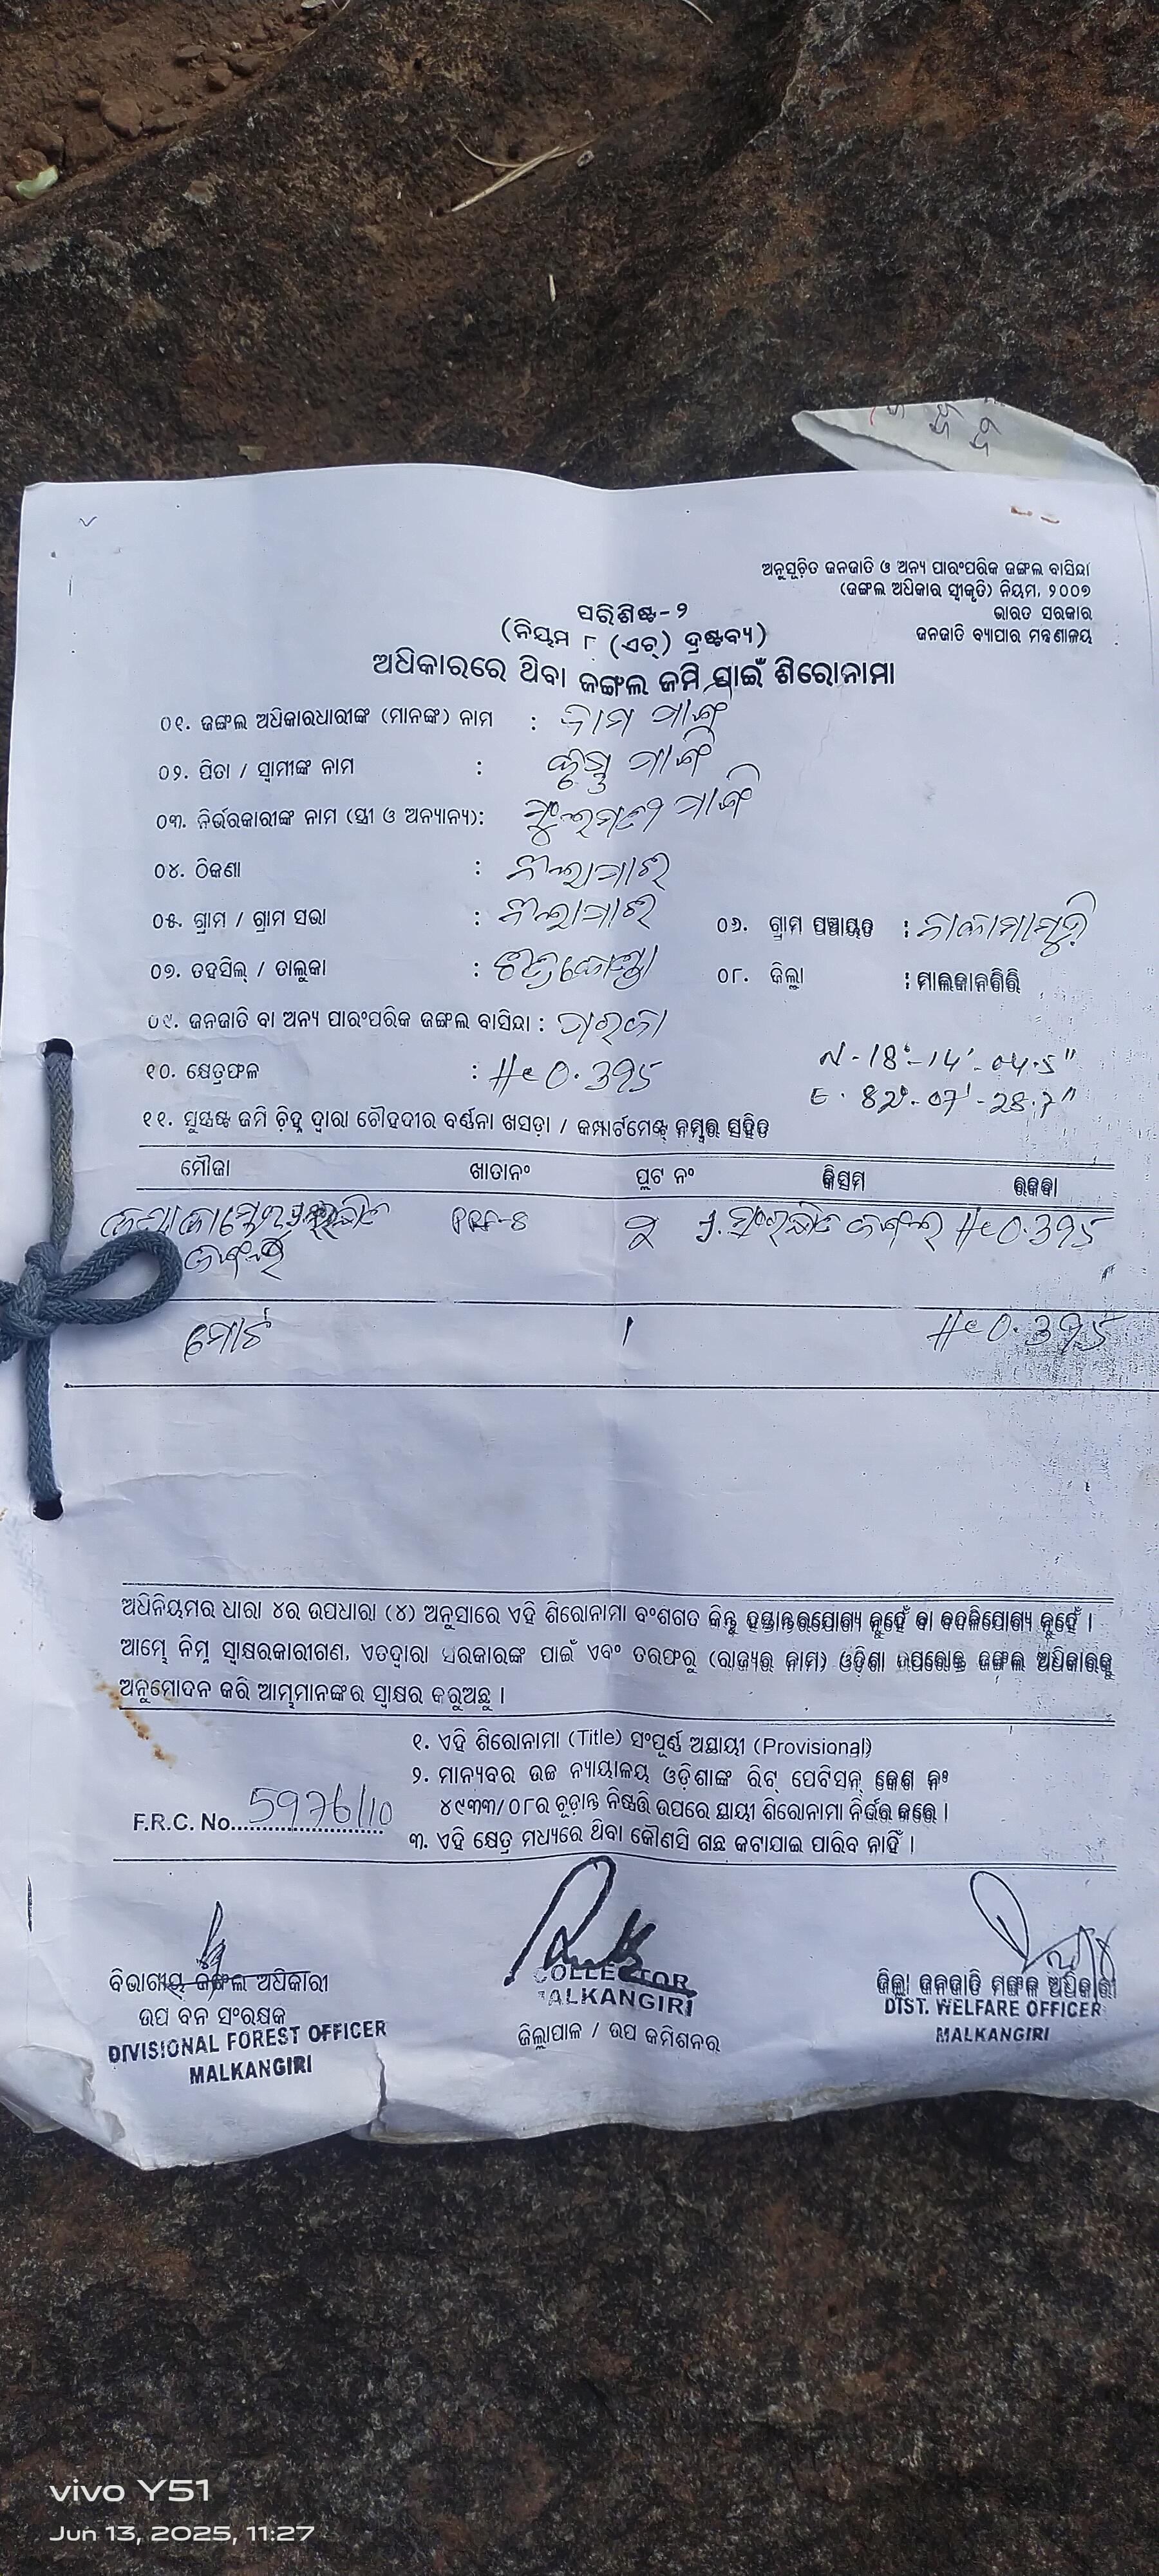 ଅନୁସୂଚିତ ଜନଜାତି ଓ ଅନ୍ୟ ପାରଂପରିକ ଜଙ୍ଗଲ ବାସିନ୍ଦା
(ଜଙ୍ଗଲ ଅଧିକାର ସ୍ୱୀକୃତି) ନିୟମ, ୨୦୦୭
ଭାରତ ସରକାର
ଜନଜାତି ବ୍ୟାପାର ମନ୍ତ୍ରଣାଳୟ
ପରିଶିଷ୍ଟ-୨
(ନିୟମ ୮ (ଏଚ୍) ଦ୍ରଷ୍ଟବ୍ୟ)
ଅଧିକାରରେ ଥିବା ଜଙ୍ଗଲ ଜମି ପାଇଁ ଶିରୋନାମା
୦୧. ଜଙ୍ଗଲ ଅଧିକାରଧାରୀଙ୍କ (ମାନଙ୍କ) ନାମ :
୦୨. ପିତା / ସ୍ୱାମୀଙ୍କ ନାମ :
୦୩. ନିର୍ଭରକାରୀଙ୍କ ନାମ (ସ୍ତ୍ରୀ ଓ ଅନ୍ୟାନ୍ୟ):
୦୪. ଠିକଣା :
୦୫. ଗ୍ରାମ / ଗ୍ରାମ ସଭା : ୦୬. ଗ୍ରାମ ପଞ୍ଚାୟତ :
୦୭. ତହସିଲ୍ / ତାଲୁକା : ୦୮. ଜିଲ୍ଲା : ମାଲକାନଗିରି
୦୯. ଜନଜାତି ବା ଅନ୍ୟ ପାରଂପରିକ ଜଙ୍ଗଲ ବାସିନ୍ଦା :
୧୦. କ୍ଷେତ୍ରଫଳ : Hc 0.395
N-18°-14'-04.5"
E-82°-07'-28.7"
୧୧. ସୁସ୍ପଷ୍ଟ ଜମି ଚିହ୍ନ ଦ୍ୱାରା ଚୌହଦୀର ବର୍ଣ୍ଣନା ଖସଡ଼ା / କମ୍ପାର୍ଟମେଣ୍ଟ୍ ନମ୍ବର ସହିତ
ମୌଜା ଖାତାନଂ ପ୍ଲଟ ନଂ କିସମ ରକବା
PRF-8 ଜଙ୍ଗଲ Hc 0.395
ଜଙ୍ଗଲ
ମୋଟ 1 Hc 0.395
ଅଧିନିୟମର ଧାରା ୪ର ଉପଧାରା (୪) ଅନୁସାରେ ଏହି ଶିରୋନାମା ବଂଶଗତ କିନ୍ତୁ ହସ୍ତାନ୍ତରଯୋଗ୍ୟ ନୁହେଁ ବା ବଦଳିଯୋଗ୍ୟ ନୁହେଁ ।
ଆମ୍ଭେ ନିମ୍ନ ସ୍ୱାକ୍ଷରକାରୀଗଣ, ଏତଦ୍ୱାରା ସରକାରଙ୍କ ପାଇଁ ଏବଂ ତରଫରୁ (ରାଜ୍ୟର ନାମ) ଓଡ଼ିଶା ଉପରୋକ୍ତ ଜଙ୍ଗଲ ଅଧିକାରକୁ
ଅନୁମୋଦନ କରି ଆମ୍ଭମାନଙ୍କର ସ୍ୱାକ୍ଷର କରୁଅଛୁ ।
୧. ଏହି ଶିରୋନାମା (Title) ସଂପୂର୍ଣ୍ଣ ଅସ୍ଥାୟୀ (Provisional)
୨. ମାନ୍ୟବର ଉଚ୍ଚ ନ୍ୟାୟାଳୟ ଓଡ଼ିଶାଙ୍କ ରିଟ୍ ପେଟିସନ୍ କେଶ ନଂ
୪୯୩୩/୦୮ର ଚୂଡ଼ାନ୍ତ ନିଷ୍ପତ୍ତି ଉପରେ ସ୍ଥାୟୀ ଶିରୋନାମା ନିର୍ଭର କରେ ।
F.R.C. No. 5976/10
୩. ଏହି କ୍ଷେତ୍ର ମଧ୍ୟରେ ଥିବା କୌଣସି ଗଛ କଟାଯାଇ ପାରିବ ନାହିଁ ।
ବିଭାଗୀୟ ଜଙ୍ଗଲ ଅଧିକାରୀ
ଉପ ବନ ସଂରକ୍ଷକ
DIVISIONAL FOREST OFFICER
MALKANGIRI
COLLECTOR
MALKANGIRI
ଜିଲ୍ଲାପାଳ / ଉପ କମିଶନର
ଜିଲ୍ଲା ଜନଜାତି ମଙ୍ଗଳ ଅଧିକାରୀ
DIST. WELFARE OFFICER
MALKANGIRI
vivo Y51
Jun 13, 2025, 11:27